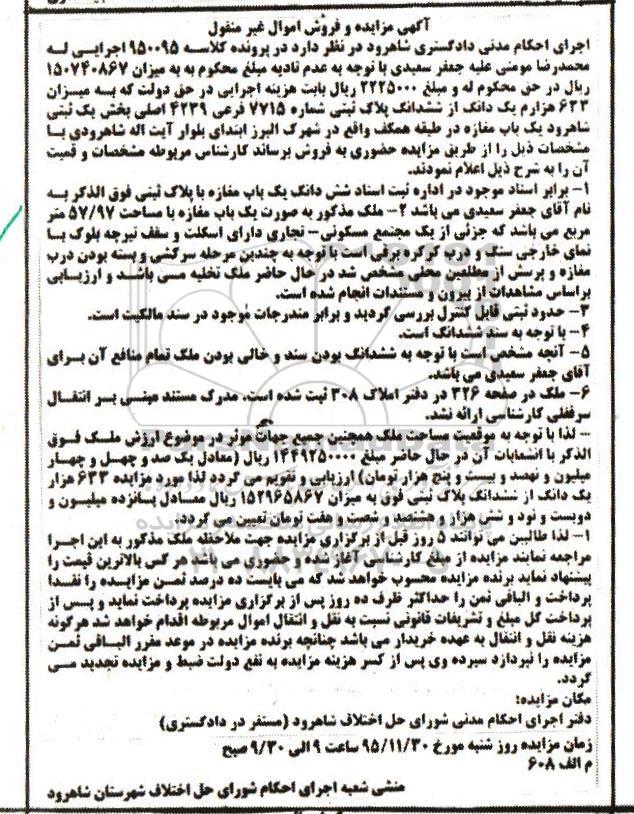 آگهی مزایده و فروش اموال غیر منقول
اجرای احکام مدنی دادگستری شاهرود در نظر دارد در پرونده کلاسه ۹۵۰۰۹۵ اجرایی له
محمدرضا مومنی علیه جعفر سعیدی با توجه به عدم تادیه مبلغ محکوم به به میزان ۱۵۰۷۴۰۸۶۷
ریال در حق محکوم له و مبلغ ۲۲۲۵۰۰۰ ریال بابت هزینه اجرایی در حق دولت که به میزان
۶۳۳ هزارم یک دانگ از ششدانگ پلاک ثبتی شماره ۷۷۱۵ فرعی ۴۲۳۹ اصلی بخش یک ثبتی
شاهرود یک باب مغازه در طبقه همکف واقع در شهرک البرز ابتدای بلوار آیت اله شاهرودی با
مشخصات ذیل را از طریق مزایده حضوری به فروش برساند کارشناس مربوطه مشخصات و قمیت
آن را به شرح ذیل اعلام نمودند.
۱- برابر اسناد موجود در اداره ثبت اسناد شش دانگ یک باب مغازه با پلاک ثبتی فوق الذکر به
نام آقای جعفر سعیدی می باشد ۲- ملک مذکور به صورت یک باب مغازه با مساحت ۵۷/۹۷ متر
مربع می باشد که جزئی از یک مجتمع مسکونی- تجاری دارای اسکلت و سقف تیرچه بلوک با
نمای خارجی سنگ و درب کرکره برقی است با توجه به چندین مرحله سرکشی و بسته بودن درب
مغازه و پرسش از مطلعین محلی مشخص شد در حال حاضر ملک تخلیه می باشد و ارزیابی
براساس مشاهدات از بیرون و مستندات انجام شده است.
۳- حدود ثبتی قابل کنترل بررسی گردید و برابر مندرجات موجود در سند مالکیت است.
۴- با توجه به سند ششدانگ است.
۵- آنچه مشخص است با توجه به ششدانگ بودن سند و خالی بودن ملک تمام منافع آن برای
آقای جعفر سعیدی می باشد.
۶- ملک در صفحه ۳۲۶ در دفتر املاک ۳۰۸ ثبت شده است. مدرک مستند مبنی بر انتقال
سرقفلی کارشناسی ارائه نشد.
- لذا با توجه به موقعیت مساحت ملک همچنین جمیع جهات موثر در موضوع ارزش ملک فوق
الذکر با انشعابات آن در حال حاضر مبلغ ۱۴۴۹۲۵۰۰۰۰ ریال (معادل یک صد و چهل و چهار
میلیون و نهصد و بیست و پنج هزار تومان) ارزیابی و تقویم می گردد لذا مورد مزایده ۶۳۳ هزار
یک دانگ از ششدانگ پلاک ثبتی فوق به میزان ۱۵۲۹۶۵۸۶۷ ریال معادل پانزده میلیون و
دویست و نود و شش هزار و هشتصد و شصت و هفت تومان تعیین می گردد.
۱- لذا طالبین می توانند ۵ روز قبل از برگزاری مزایده جهت ملاحظه ملک مذکور به این اجرا
مراجعه نمایند مزایده از مبلغ کارشناسی آغاز شده و حضوری می باشد هر کس بالاترین قیمت را
پیشنهاد نماید برنده مزایده محسوب خواهد شد که می بایست ده درصد ثمن مزایده را نقدا
پرداخت و الباقی ثمن را حداکثر ظرف ده روز پس از برگزاری مزایده پرداخت نماید و پس از
پرداخت کل مبلغ و تشریفات قانونی نسبت به نقل و انتقال اموال مربوطه اقدام خواهد شد هرگونه
هزینه نقل و انتقال به عهده خریدار می باشد چنانچه برنده مزایده در موعد مقرر الباقی ثمن
مزایده را نپردازد سپرده وی پس از کسر هزینه مزایده به نفع دولت ضبط و مزایده تجدید می
گردد.
مکان مزایده:
دفتر اجرای احکام مدنی شورای حل اختلاف شاهرود (مستقر در دادگستری)
زمان مزایده روز شنبه مورخ ۹۵/۱۱/۳۰ ساعت ۹ الی ۹/۳۰ صبح
م الف ۶۰۸
منشی شعبه اجرای احکام شورای حل اختلاف شهرستان شاهرود